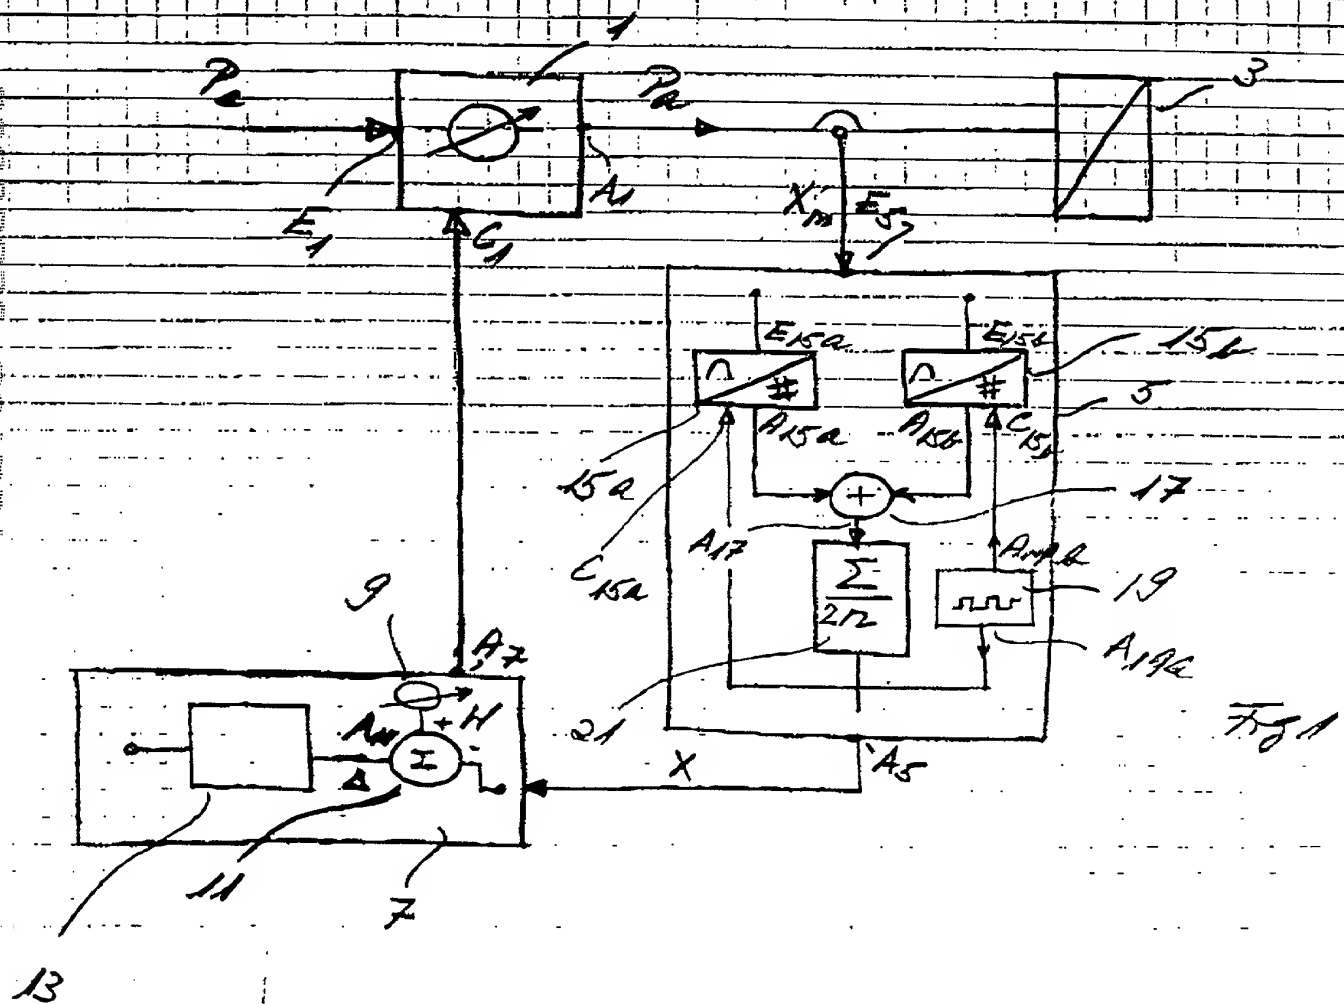 1
Pe
Pa
3
E1
A1
C1
Xm
E5
E15a
E15b
15b
#
#
5
A15a
A15b
C15b
15a
+
17
A17
C15a
Σ
2n
19
A19a
9
A7
21
Fig 1
+ H
-
Σ
Δ
X
A5
11
7
13